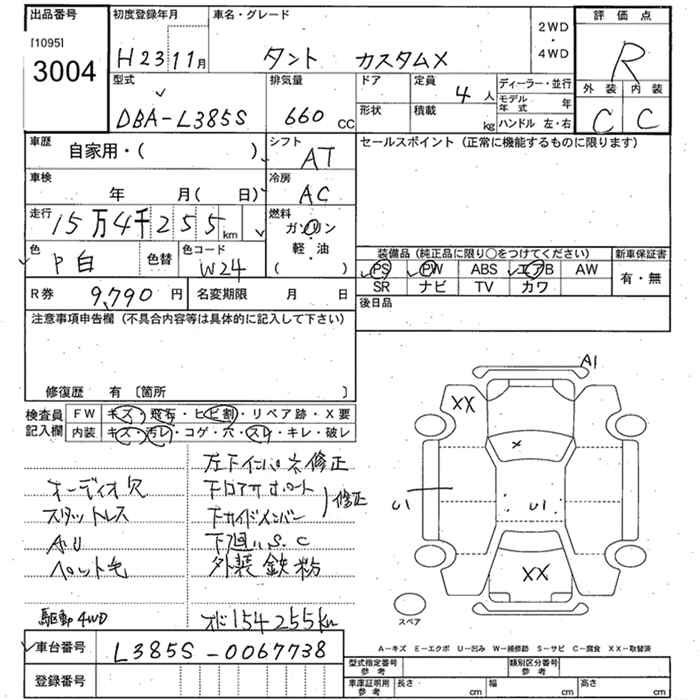 出品番号 初度登録年月 車名・グレード 2WD ・ 4WD 評価点
[1095]
3004 H23 11月 タント カスタムX R
型式 排気量 ドア 定員 4人 ディーラー・並行 外装 内装
DBA-L385S 660 CC 形状 積載 kg モデル年式 年 C C
ハンドル 左・右
車歴 自家用・( ) シフト AT セールスポイント (正常に機能するものに限ります)
車検 年 月( 日) 冷房 AC
走行 15万4千255km 燃料 ガソリン
軽・油
( )
色 P白 色替 色コード W24 装備品 (純正品に限り○をつけてください) 新車保証書
PS PW ABS エアB AW 有・無
SR ナビ TV カワ
R券 9,790円 名変期限 月 日 後日品
注意事項申告欄 (不具合内容等は具体的に記入して下さい)
修復歴 有 [箇所 ]
検査員記入欄 FW キズ・飛石・ヒビ割・リペア跡・X要
内装 キズ・汚レ・コゲ・穴・スレ・キレ・破レ
左右インパネ修正
オーディオ穴 下ロアサポート
スタットレス 下サイドメンバー 修正
A.U 下廻りS.C
ペット毛 外装鉄粉
駆動4WD オド154255km
A1
XX
×
U1 U1
XX
スペア
A-キズ E-エクボ U-凹み W-補修跡 S-サビ C-腐食 XX-取替済
車台番号 L385S-0067738
登録番号
型式指定番号 参考 類別区分番号 参考
車庫証明用 参考 長さ cm 幅 cm 高さ cm